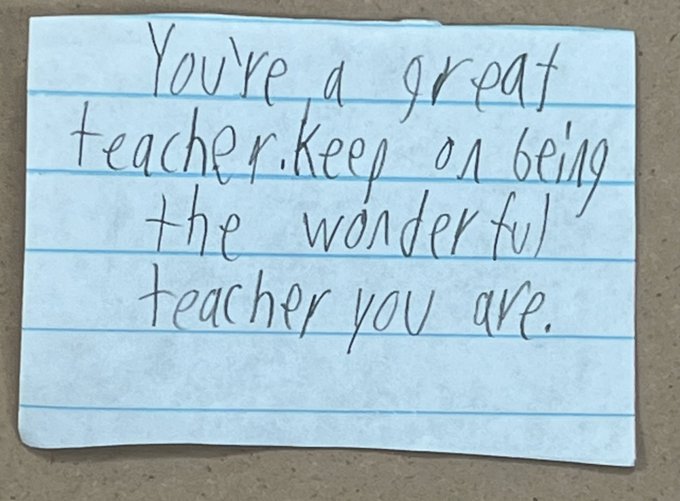 You're a great
teacher. Keep on being
the wonderful
teacher you are.